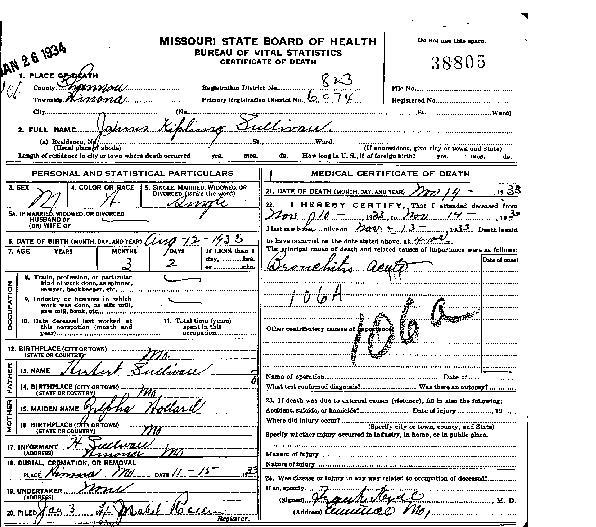 JAN 26 1934
MISSOURI STATE BOARD OF HEALTH
BUREAU OF VITAL STATISTICS
CERTIFICATE OF DEATH
Do not use this space.
38805
1. PLACE OF DEATH
County Shannon
Registration District No. 823
File No.
Township Winona
Primary Registration District No. 6074
Registered No.
City (No. St. Ward)
2. FULL NAME James Kipling Sullivan
(a) Residence, No. St. Ward.
(Usual place of abode) (If nonresident, give city or town and State)
Length of residence in city or town where death occurred yrs. mos. ds. How long in U. S., if of foreign birth? yrs. mos. ds.
PERSONAL AND STATISTICAL PARTICULARS
3. SEX M
4. COLOR OR RACE W
5. SINGLE, MARRIED, WIDOWED, OR DIVORCED (write the word) Single
5A. IF MARRIED, WIDOWED, OR DIVORCED
HUSBAND OF
(OR) WIFE OF
6. DATE OF BIRTH (MONTH, DAY, AND YEAR) Aug 12 - 1933
7. AGE YEARS MONTHS DAYS If LESS than 1 day, hrs. or min.
3 2
OCCUPATION
8. Trade, profession, or particular kind of work done, as spinner, sawyer, bookkeeper, etc.
9. Industry or business in which work was done, as silk mill, saw mill, bank, etc.
10. Date deceased last worked at this occupation (month and year)
11. Total time (years) spent in this occupation
12. BIRTHPLACE (CITY OR TOWN)
(STATE OR COUNTRY) Mo
FATHER
13. NAME Hubert Sullivan
14. BIRTHPLACE (CITY OR TOWN)
(STATE OR COUNTRY) Mo
MOTHER
15. MAIDEN NAME Holland
16. BIRTHPLACE (CITY OR TOWN)
(STATE OR COUNTRY) Mo
17. INFORMANT H Sullivan
(ADDRESS) Winona Mo
18. BURIAL, CREMATION, OR REMOVAL
PLACE Winona Mo DATE 11-15 1933
19. UNDERTAKER None
(ADDRESS)
20. FILED Jan 3 Mabel
Registrar.
MEDICAL CERTIFICATE OF DEATH
21. DATE OF DEATH (MONTH, DAY, AND YEAR) Nov 14 - 1933
22. I HEREBY CERTIFY, That I attended deceased from
Nov 10 - 1933 to Nov 14 - 1933
I last saw him alive on Nov - 13 - 1933 Death is said
to have occurred on the date stated above, at
The principal cause of death and related causes of importance were as follows:
Date of onset
Bronchitis acute
106A
106a
Other contributory causes of importance:
Name of operation Date of
What test confirmed diagnosis? Was there an autopsy?
23. If death was due to external causes (violence), fill in also the following:
Accident, suicide, or homicide? Date of injury 19
Where did injury occur?
(Specify city or town, county, and State)
Specify whether injury occurred in industry, in home, or in public place.
Manner of injury
Nature of injury
24. Was disease or injury in any way related to occupation of deceased?
If so, specify
(Signed) Frank Hyde M. D.
(Address) Eminence Mo,